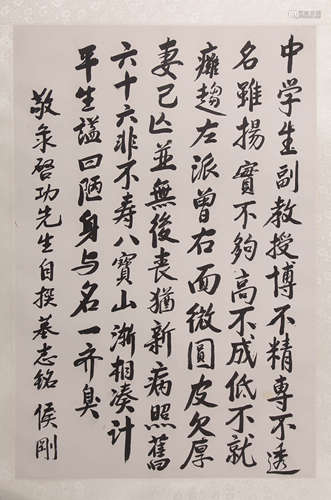 中学生副教授博不精專不透
名雖揚實不夠高不成低不就
癱趨左派曾右面微圓皮欠厚
妻已亡並無後喪猶新病照舊
六十六非不寿八寶山漸相凑計
平生謚曰陋身与名一齐臭
敬录啓功先生自撰墓志銘 侯剛